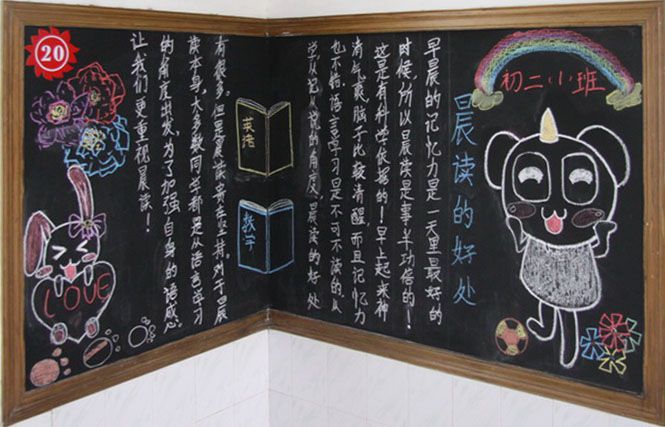 初二小班
晨读的好处
早晨的记忆力是一天里最好的
时候,所以晨读是事半功倍的!
这是有科学依据的!早上起来神
清气爽,脑子比较清醒,而且记忆力
也不错,语言学习是不可不读的,从
从记从说的角度,晨读的好处
英语
数学
有很多。但是晨读贵在坚持。对于晨
读本身,大多数同学都是从语言学习
的角度出发,为了加强自身的语感。
让我们更重视晨读!
20
LOVE